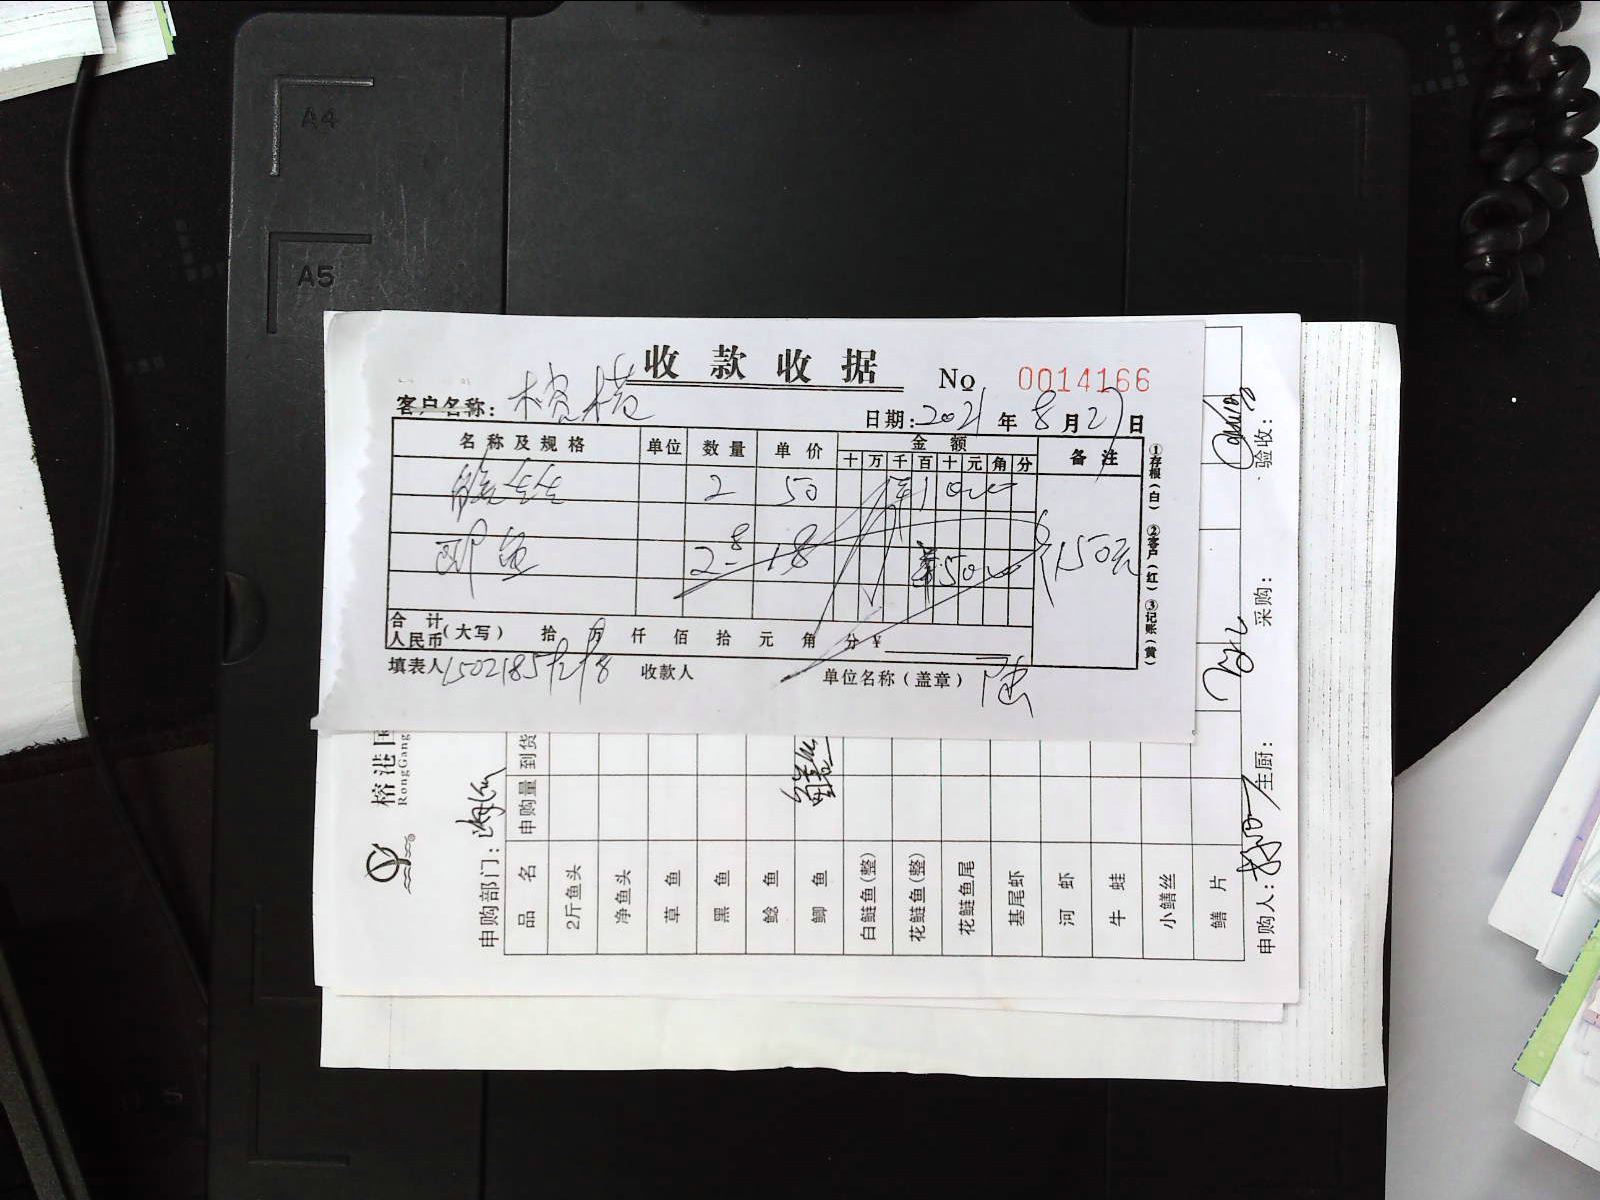 A4
A5
收款收据
No 0014166
客户名称:
日期:2021年8月27日
名称及规格 单位 数量 单价 金额 备注
十 万 千 百 十 元 角 分
2 50
鱼 2.8 18 1500元
合计
人民币(大写) 拾 万 仟 佰 拾 元 角 分 ¥
填表人 收款人 单位名称(盖章) 陆
①存根(白) ②客户(红) ③记账(黄)
榕港国
RongGang
申购部门:
品名 申购量 到货
2斤鱼头
净鱼头
草鱼
黑鱼
鲶鱼
鲫鱼
白鲢鱼(整)
花鲢鱼(整)
花鲢鱼尾
基尾虾
河虾
牛蛙
小鳝丝
鳝片
申购人: 主厨: 采购: 验收: